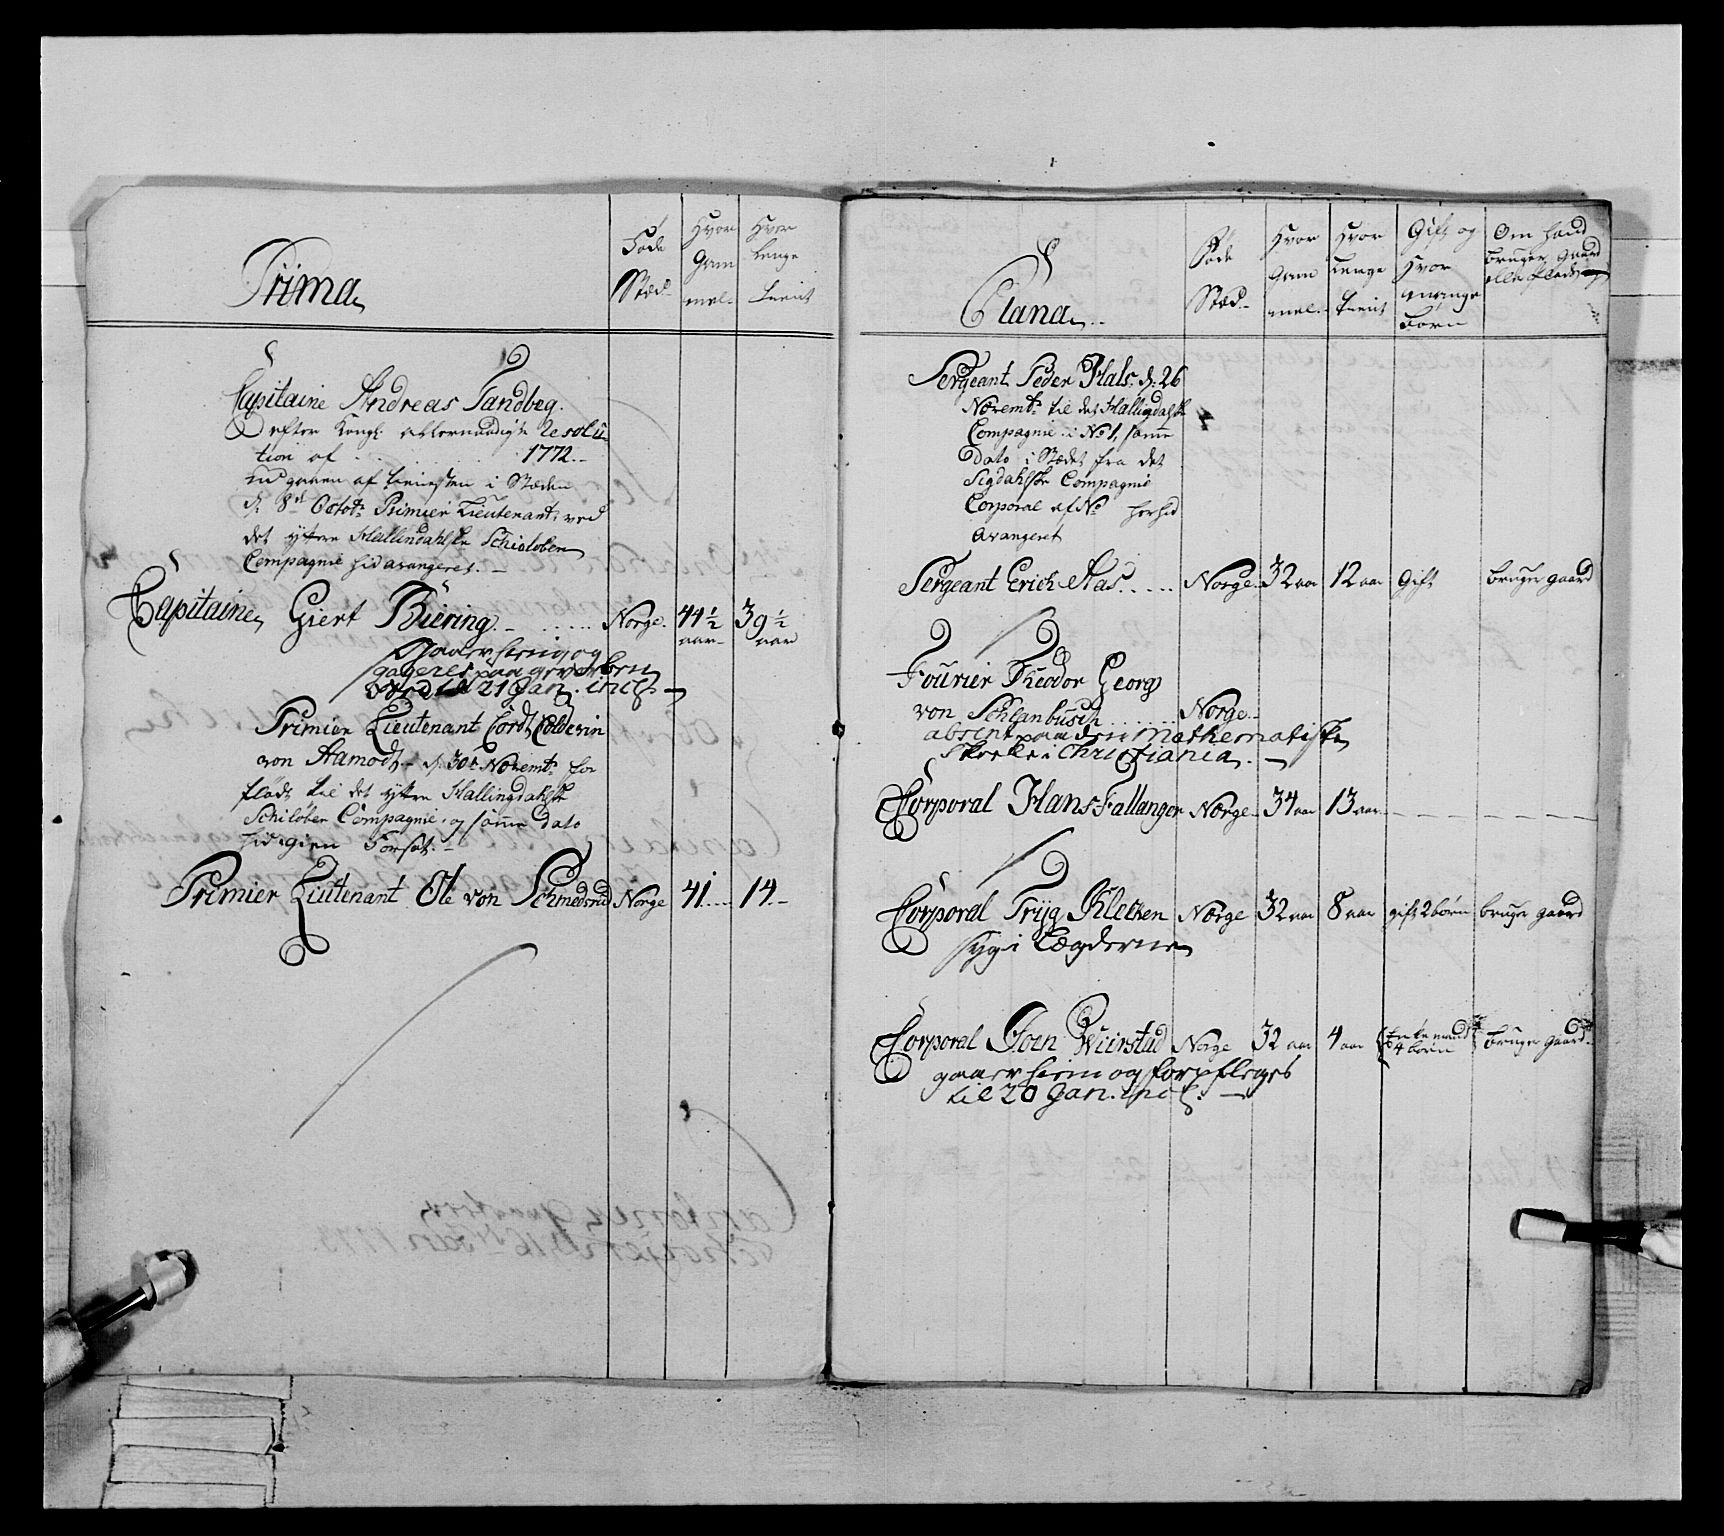 Prima
Føde
Stæd
Hvor
Gam
mel
Hvor
Lenge
tient
Capitaine Andreas Sandbeg.
efter Kongl. allernaadigst Resolu
tion af . . . 1772.
udgaaen af tienesten i Stæden
d. 8de Octobr Primier Lieutenant ved
det yttre Hallendahlske Schieloben
Compagnie hid arangeret.
Capitaine Giert Büring Norge. 44½ aar 39½ aar
til 21 Jan. incl.
Primier Lieutenant Cord Colderin
von Aamodt d. 30te Novembr for
flødt til det yttre Hallingdahlske
Schiløber Compagnie og samme dato
hid igien Forsat.
Primier Lieutenant Ole von Schmedsrud Norge 41. 14.
Etana
Føde
Stæd
Hvor
Gam
mel.
Hvor
Lenge
tient
Gift og
Hvor
mange
børn
Om hand
bruger Gaard
eller Plads
Sergeant Peder Hals d. 26
Novembr til det Hallingdalske
Compagnie i No 1, samme
Dato i Stædet fra det
Sigdahlske Compagnie
Corporal af No herhid
Arangeret
Sergeant Erich Aas Norge. 32 aar 12 aar Gift bruger gaard
Fourier Theodor Georg
von Schlanbusch Norge
absent paa den Mathematiske
Skoele i Christiania.
Corporal Hans Fallanger Norge 34 aar 13 aar
Corporal Tryg Kletten Norge 32 aar 8 aar gift 2 børn bruger gaard
syg i Lægderne
Corporal Joen Wiirstad Norge 32 aar 4 aar Enkemand 4 børn bruger gaard
gaaer hiem og forpfleges
til 20 Jan. incl.